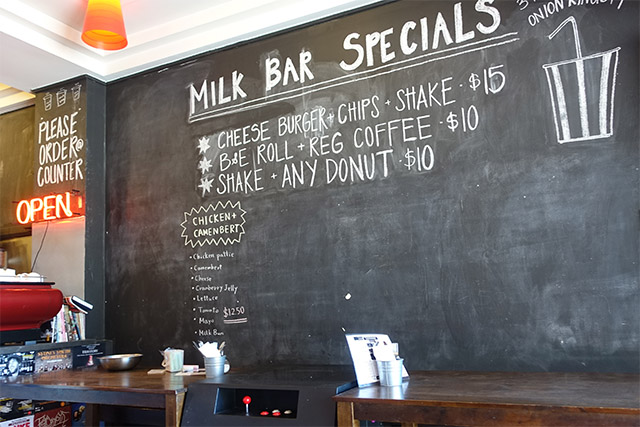 MILK BAR SPECIALS
CHEESE BURGER + CHIPS + SHAKE · $15
B&E ROLL + REG COFFEE · $10
SHAKE + ANY DONUT · $10
ONION RINGS
PLEASE
ORDER@
COUNTER
OPEN
CHICKEN +
CAMENBERT
• Chicken pattie
• Camembert
• Cheese
• Cranberry Jelly
• Lettuce
• Tomato
$12.50
• Mayo
• Milk Bun